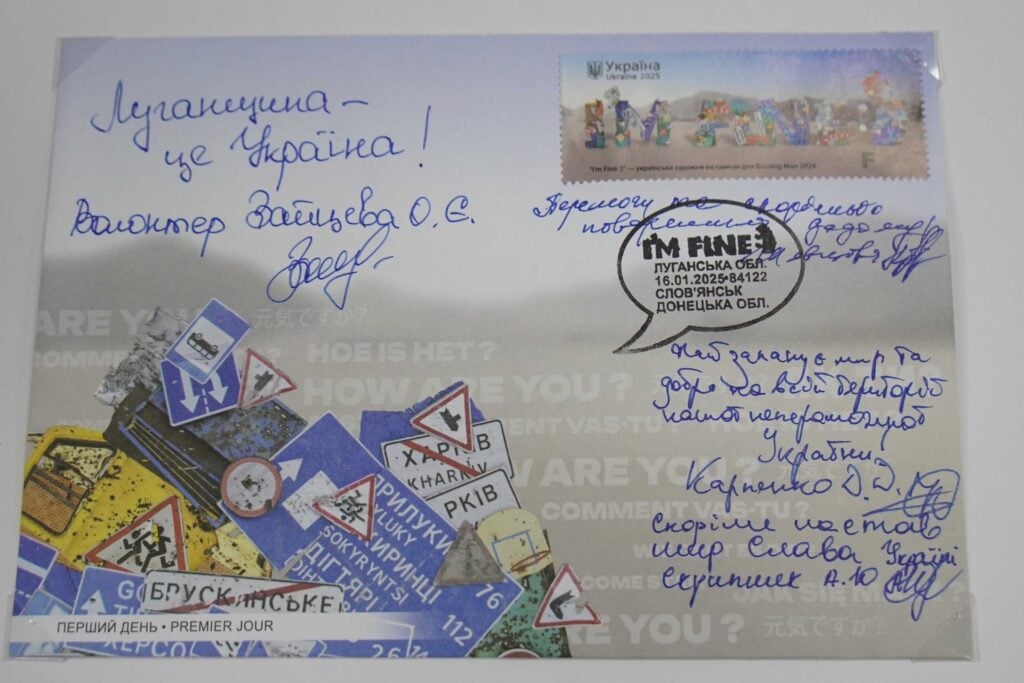 Луганщина –
це Україна!
Волонтер Зайцева О. Є.
Україна
Ukraine 2025
I'M FINE
"I'm Fine :)" — українська художня інсталяція для Burning Man 2024.
F
Перемогу
I'M FINE:)
ЛУГАНСЬКА ОБЛ.
16.01.2025•84122
СЛОВ'ЯНСЬК
ДОНЕЦЬКА ОБЛ.
Най запанує мир та
добро на всій території
нашої непереможної
України!
Карпенко Д. Д.
Скоріше настав
мир Слава Україні
Скрипник А. Ю
ARE YOU
元気ですか?
HOE IS HET?
COMMENT
HOW ARE YOU?
COMM
ENT VAS-TU
ARE YOU?
元気
COMMENT VAS-TU?
COME S
JAK SIĘ M
RE YOU?
元気ですか?
ХАРКІВ
KHARKIV
РКІВ
ПРИЛУКИ
YLUKY
ИРИНЦІ
SOKYRYNTSI
ДІГТЯРІ
76
112
26
БРУСКИНСЬКЕ
ХЕРСО
ПЕРШИЙ ДЕНЬ • PREMIER JOUR